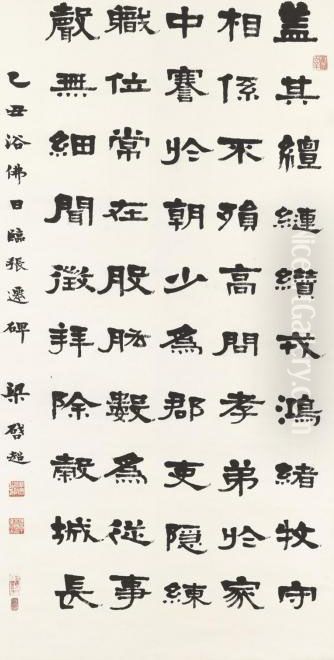 盖其繵縺纘戎鴻緒牧守
相係不殞高問孝弟於家
中謇於朝少為郡吏隱練
職位常在股肱數為從事
聲無細聞徵拜除穀城長
乙丑浴佛日臨張遷碑 梁啓超